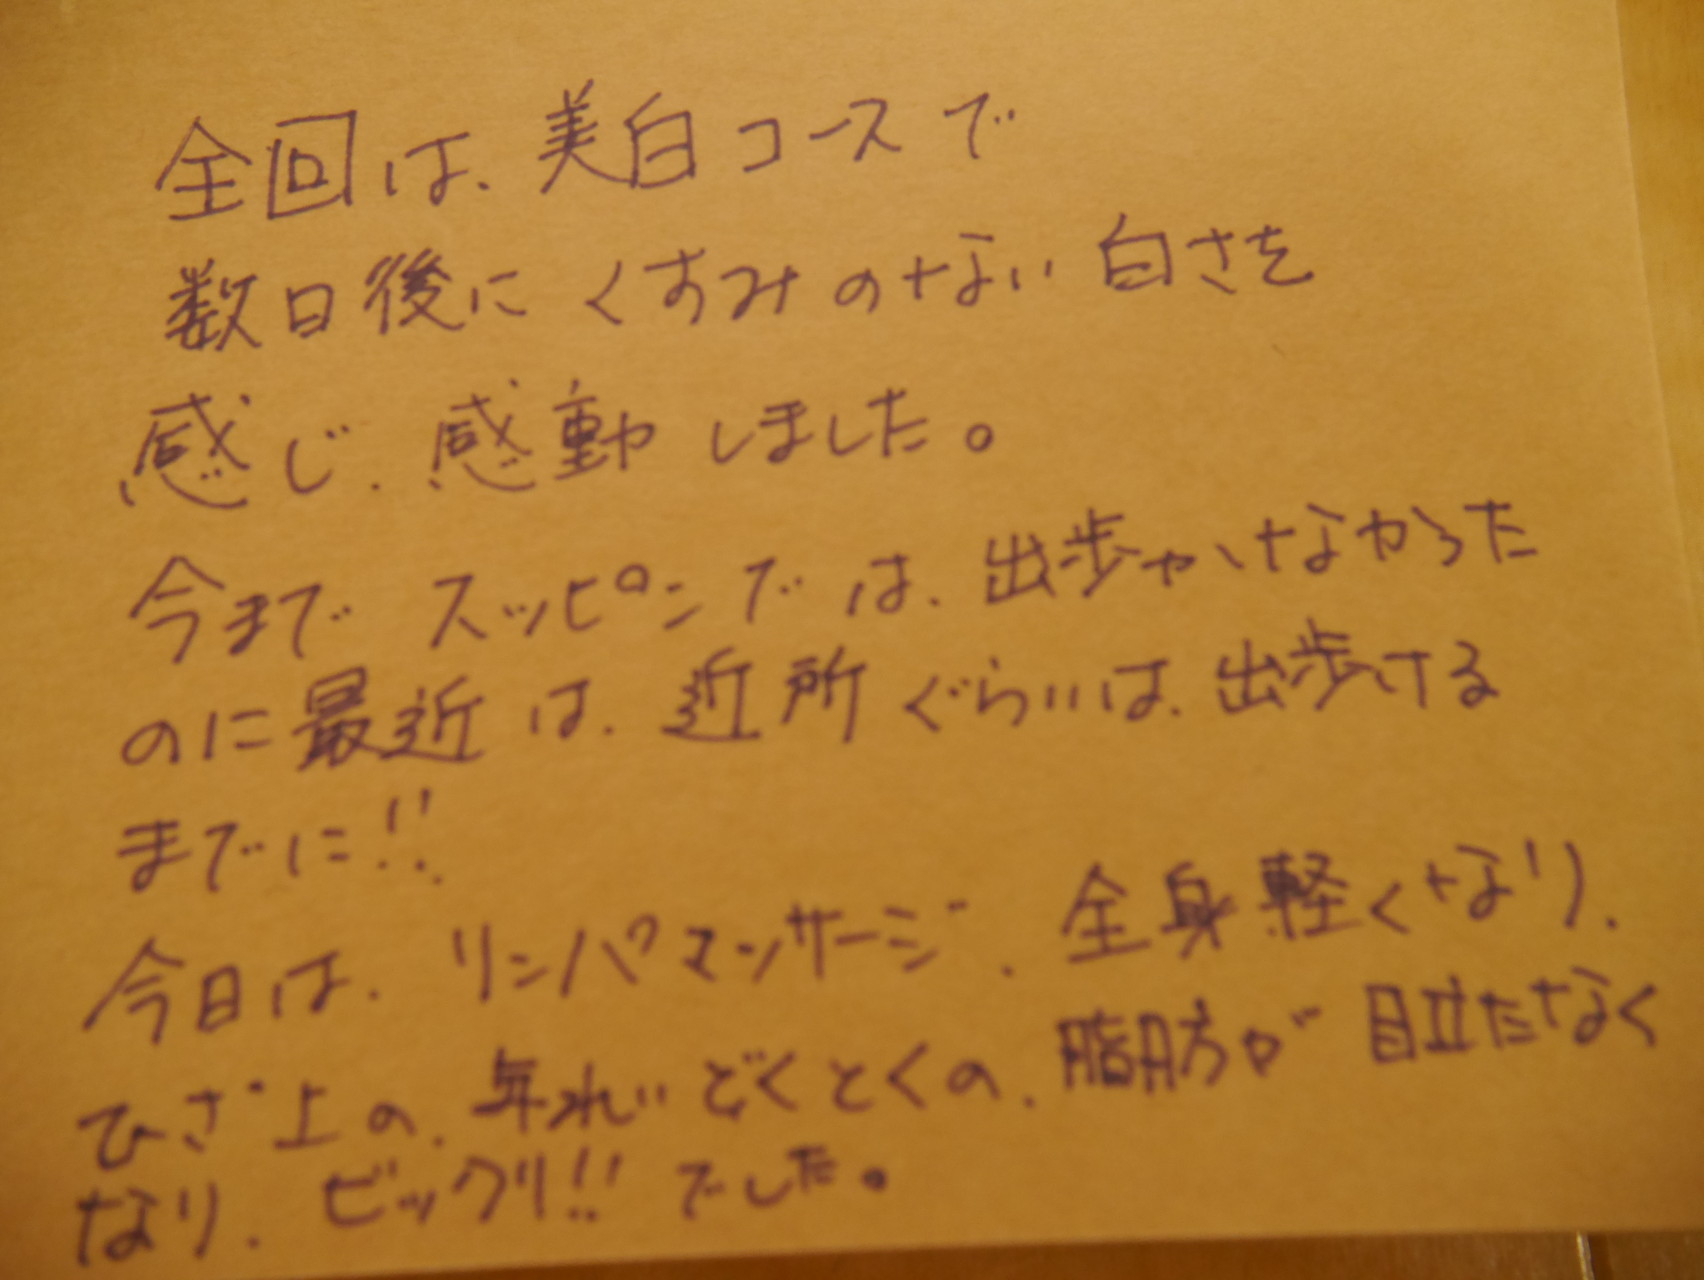 全回は、美白コースで
数日後にくすみのない白さを
感じ、感動しました。
今までスッピンでは、出歩かけなかった
のに最近は、近所ぐらいは、出歩ける
までに!!
今日は、リンパマッサージ、全身軽くなり、
ひざ上の、年れいどくとくの、脂肪が目立たなく
なり、ビックリ!!でした。